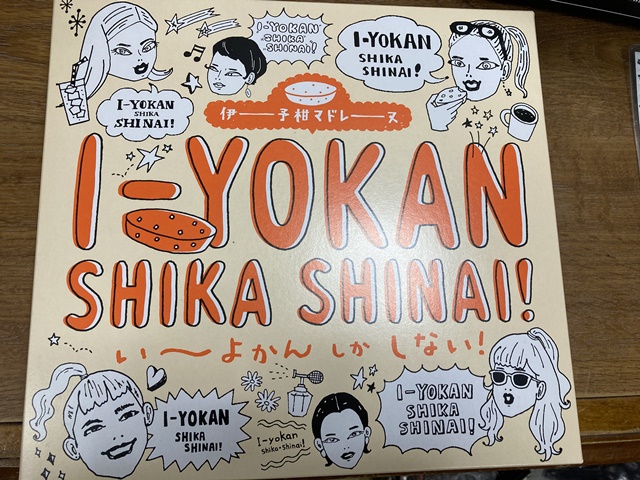 I-YOKAN
SHIKA
SHINAI!
I-YOKAN
SHIKA
SHINAI!
I-YOKAN
SHIKA
SHINAI!
伊――予柑マドレ――ヌ
I-YOKAN
SHIKA SHINAI!
い〜よかん しか しない!
I-YOKAN
SHIKA
SHINAI!
I-yokan
shika・shinai!
I-YOKAN
SHIKA
SHINAI!